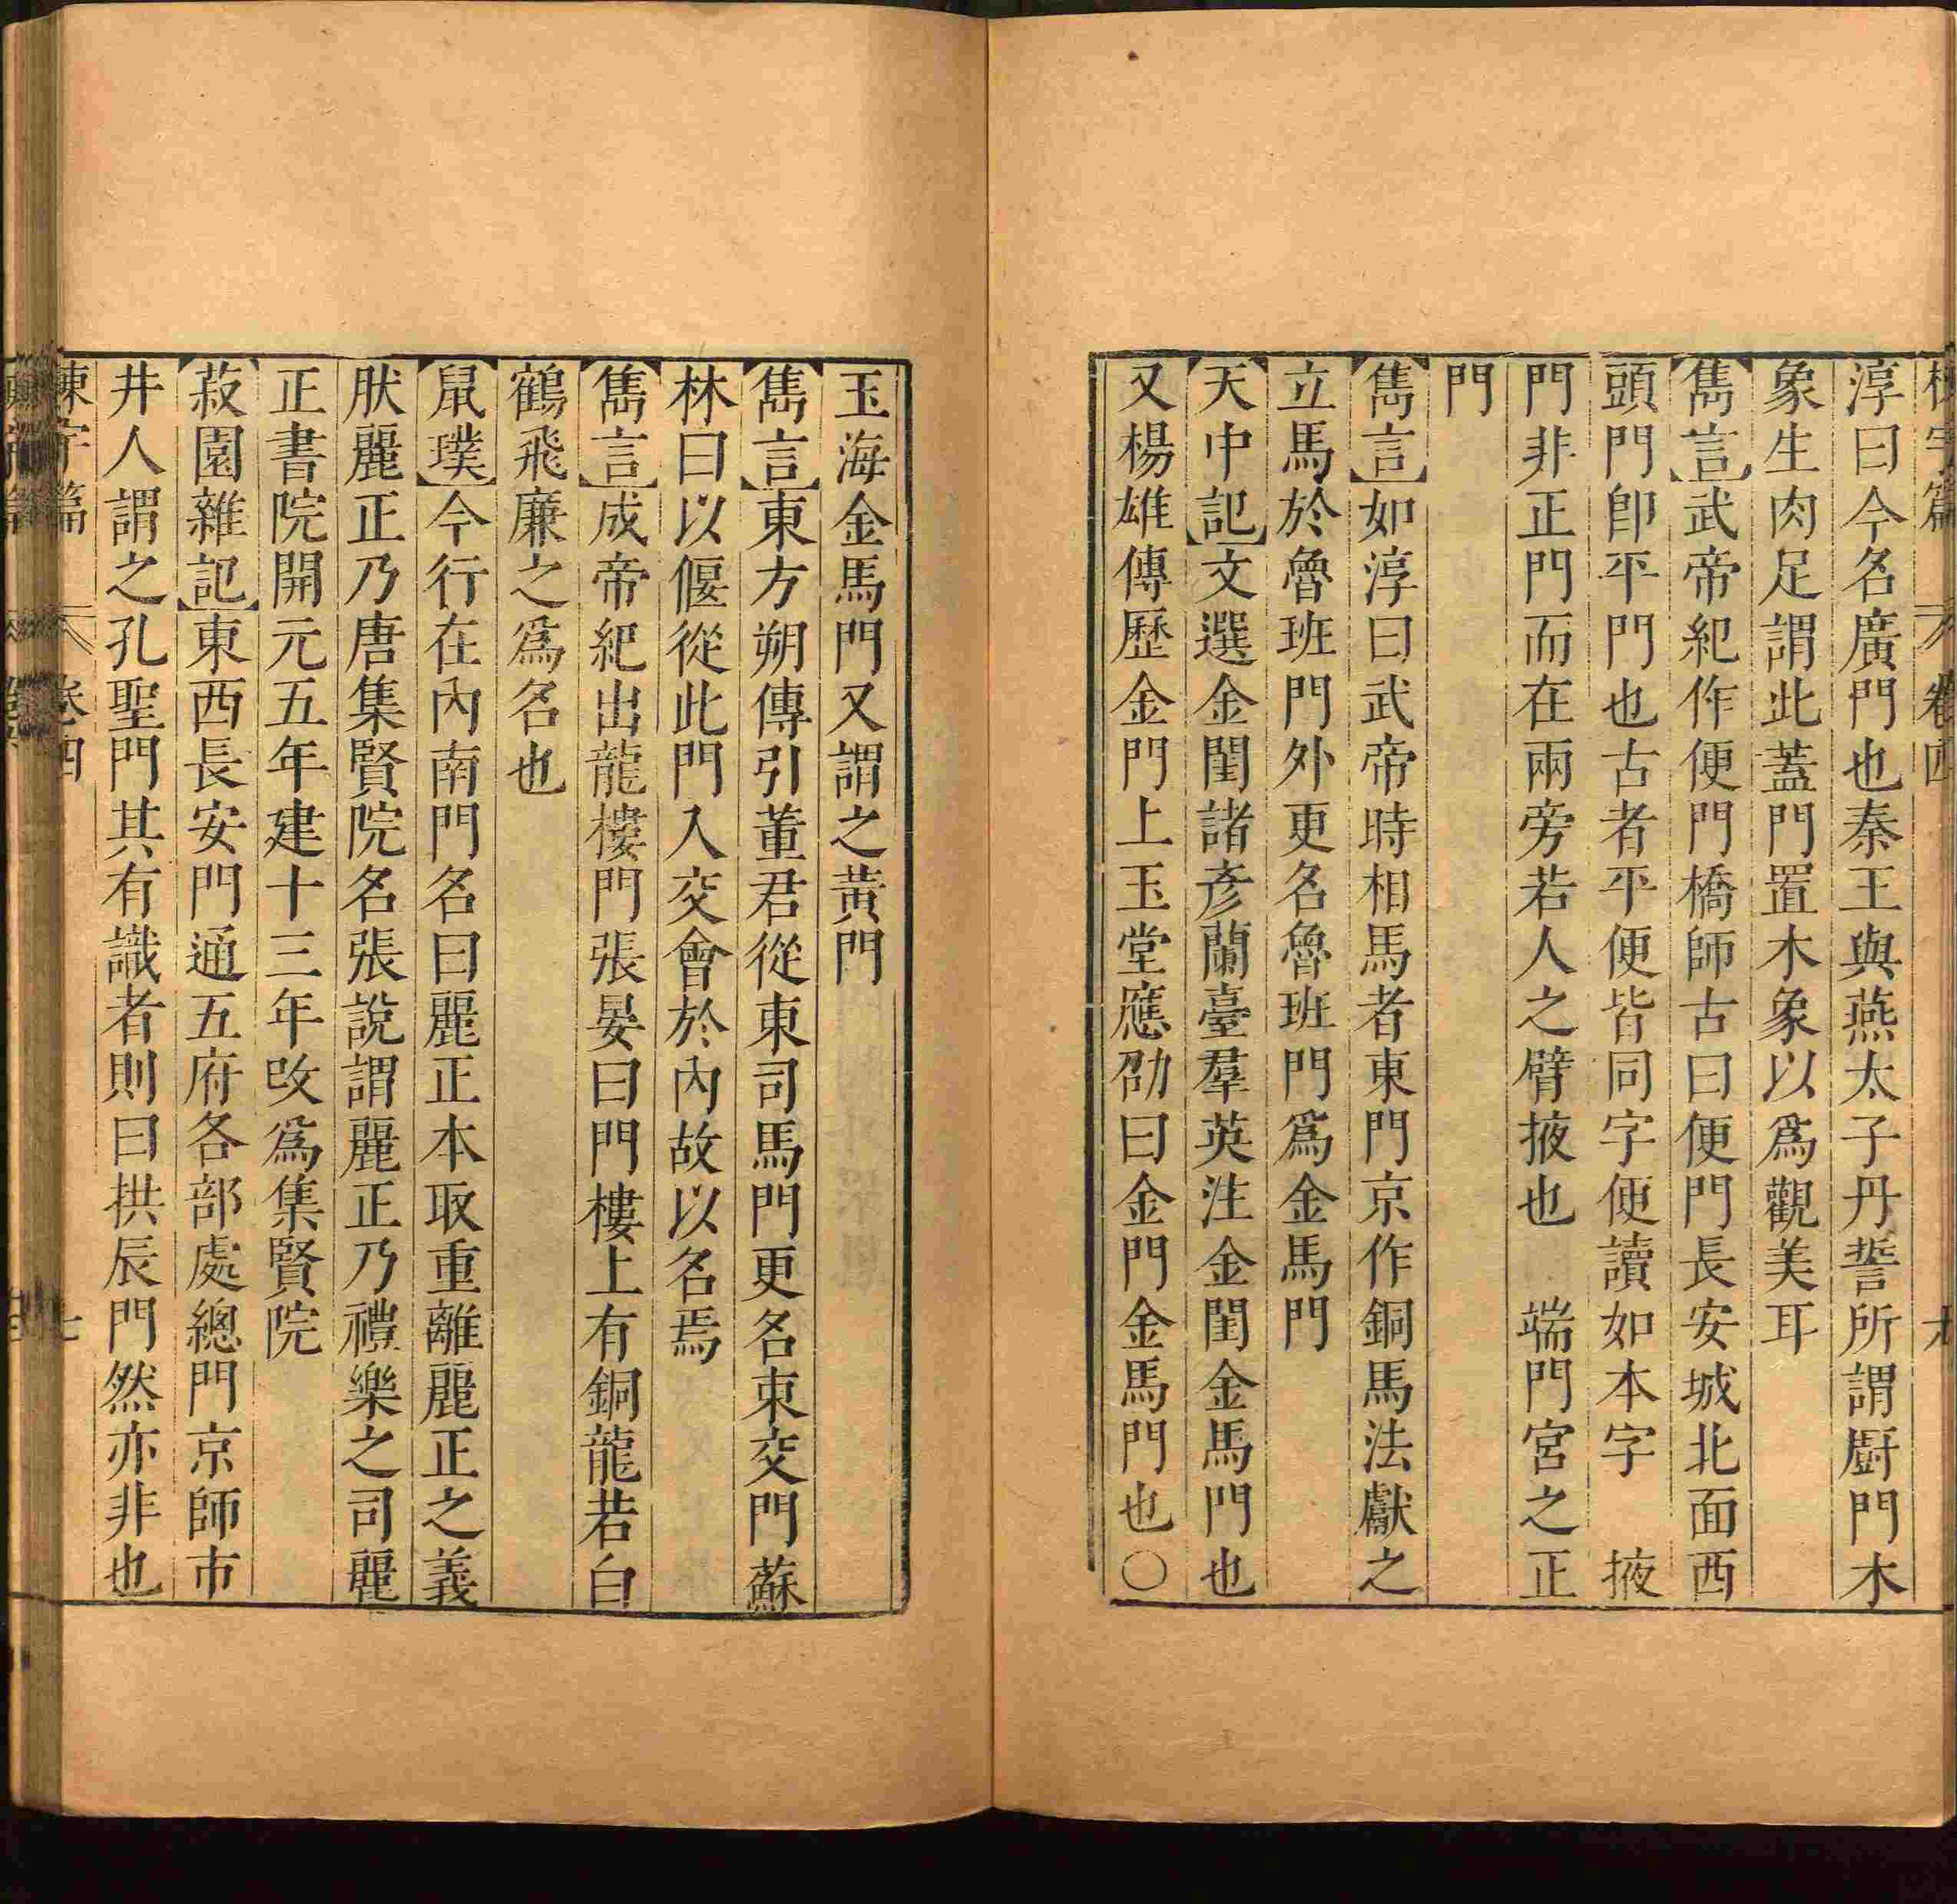 淳曰今名廣門也秦王與燕太子丹誓所謂廚門木
象生肉足謂此蓋門置木象以爲觀美耳
【雋言】武帝紀作便門橋師古曰便門長安城北面西
頭門卽平門也古者平便皆同字便讀如本字　掖
門非正門而在兩旁若人之臂掖也　端門宮之正
門
【雋言】如淳曰武帝時相馬者東門京作銅馬法獻之
立馬於魯班門外更名魯班門爲金馬門
【天中記】文選金閨諸彥蘭臺羣英注金閨金馬門也
又楊雄傳歷金門上玉堂應劭曰金門金馬門也〇
玉海金馬門又謂之黃門
【雋言】東方朔傳引董君從東司馬門更名東交門蘇
林曰以偃從此門入交會於內故以名焉
【雋言】成帝紀出龍樓門張晏曰門樓上有銅龍若白
鶴飛廉之爲名也
【鼠璞】今行在內南門名曰麗正本取重離麗正之義
肰麗正乃唐集賢院名張說謂麗正乃禮樂之司麗
正書院開元五年建十三年改爲集賢院
【菽園雜記】東西長安門通五府各部處總門京師市
井人謂之孔聖門其有識者則曰拱辰門然亦非也
卷四